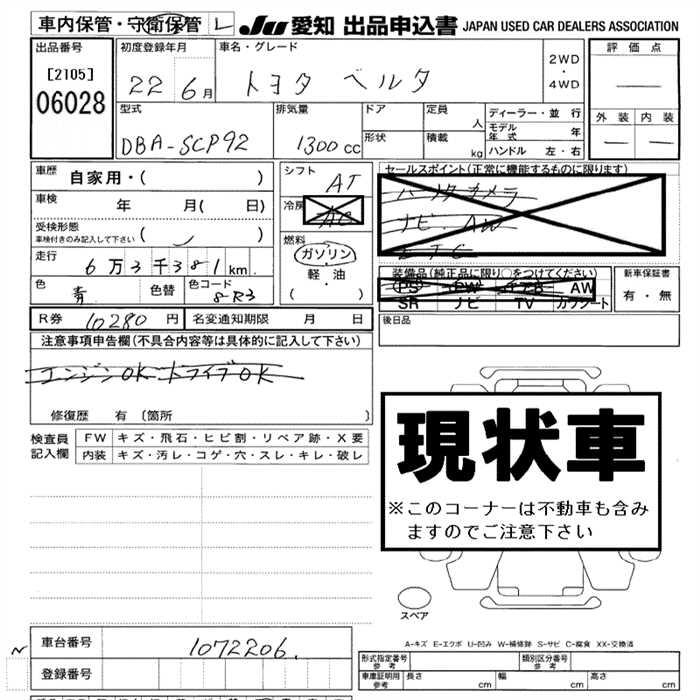 車内保管・守衛保管 L JU 愛知 出品申込書 JAPAN USED CAR DEALERS ASSOCIATION
出品番号 初度登録年月 車名・グレード 評価点
[2105] 22 6月 トヨタ ベルタ 2WD・4WD
06028 外装 内装
型式 排気量 ドア 定員 人 ディーラー・並行
DBA-SCP92 1300cc 形状 積載 kg モデル年式 年
ハンドル 左・右
車歴 自家用・( ) シフト AT セールスポイント(正常に機能するものに限ります)
車検 年 月( 日) 冷房 AC
ナビ. AW
ETC
受検形態 車検付きのみ記入して下さい ( ) 燃料 ガソリン・軽油 ( )
走行 6万3千381km 装備品(純正品に限り○をつけてください) 新車保証書
色 青 色替 色コード 8R3 PS PW AW 有・無
SR ナビ TV カワシート
R券 10280円 名変通知期限 月 日 後日品
注意事項申告欄(不具合内容等は具体的に記入して下さい)
エンジンOK ドライブOK
修復歴 有 〔箇所 〕
現状車
※このコーナーは不動車も含み
ますのでご注意下さい
検査員記入欄 FW キズ・飛石・ヒビ割・リペア跡・X要
内装 キズ・汚レ・コゲ・穴・スレ・キレ・破レ
スペア
A-キズ E-エクボ U-凹み W-補修跡 S-サビ C-腐食 XX-交換済
車台番号 1072206.
登録番号
形式指定番号 参考 類別区分番号 参考
車庫証明用 参考 長さ cm 幅 cm 高さ cm